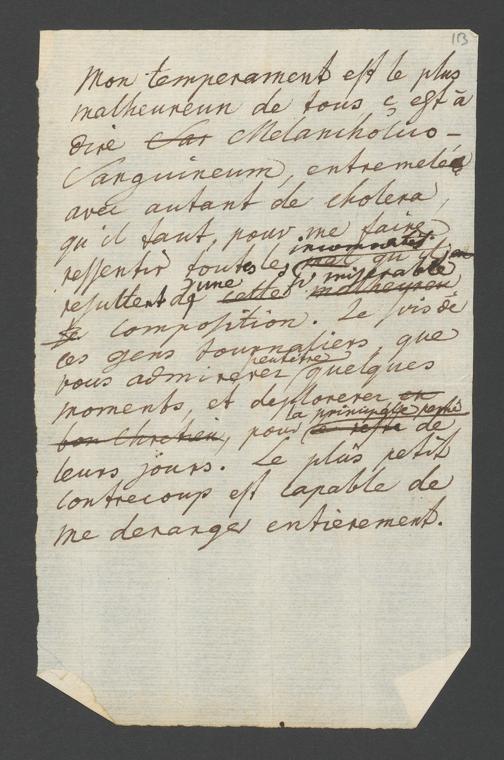 113
Mon temperament est le plus
malheureun de tous c est à
dire Sar Melancholico-
Sanguineum, entremelée
avec autant de cholera,
qu'il faut, pour me faire
incomodités
ressentir toutes les mal qu'il en
d'une si miserable
resultent de cette malheureu
composition. Je suis de
ces gens journaliers, que
peutetre
vous admirerez quelques
moments, et deplorerez en
la principale reste
bon Chretien, pour le reste de
leurs jours. Le plus petit
contrecoup est capable de
me deranger entièrement.